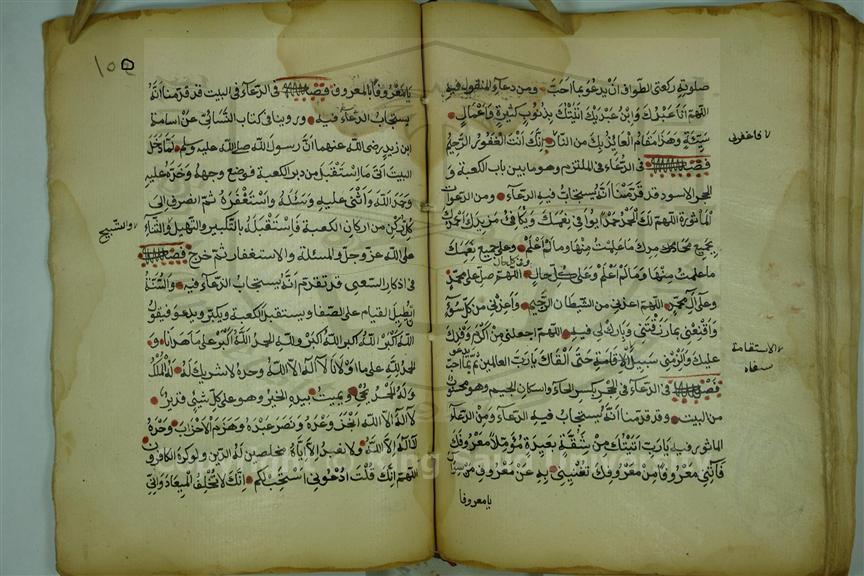 صلوته ركعتى الطواف ان يدعو بما احب ومن دعاء المنقول فيه
اللهم انا عبدك وابن عبدك اتيتك بذنوب كثيرة واعمال
سيئة وهذا مقام العائذ بك من النار انك انت الغفور الرحيم
فاغفرلى
فصل فى الدعاء فى الملتزم وهو ما بين باب الكعبة و
الحجر الاسود قد قدمنا انه يستجاب فيه الدعاء ومن الدعوات
المأثورة اللهم لك الحمد حمدا يوافى نعمك ويكافئ مزيدك احمدك
بجميع محامدك ما علمت منها وما لم اعلم وعلى جميع نعمك
ما علمت منها وما لم اعلم وعلى كل حال اللهم صل على محمد
وعلى آل محمد اللهم اعذنى من الشيطان الرجيم واعذنى من كل سوء
واقنعنى بما رزقتنى وبارك لى فيه اللهم اجعلنى من اكرم وفدك
عليك والزمنى سبيل الاقامة حتى القاك يا رب العالمين ثم يدعو بما احب
الاستقامة
فصل فى الدعاء فى الحجر بكسر الحاء واسكان الجيم وهو محسوب
من البيت وقد قدمنا انه يستجاب فيه الدعاء ومن الدعاء
المأثور فيه يا رب اتيتك من شقة بعيدة مؤملا معروفك
فانلنى معروفا من معروفك تغنينى به عن معروف من سواك
يا معروفا
١٥٥
يا معروفا بالمعروف فصل فى الدعاء فى البيت قد قدمنا انه
يستجاب الدعاء فيه وروينا فى كتاب النسائى عن اسامة
ابن زيد رضى الله عنهما ان رسول الله صلى الله عليه وسلم لما دخل
البيت اتى ما استقبل من دبر الكعبة فوضع وجهه وخده عليه
وحمد الله واثنى عليه وسئله واستغفره ثم انصرف الى
كل ركن من اركان الكعبة فاستقبله بالتكبير والتهليل والثناء
والتسبيح
على الله عز وجل والمسئلة والاستغفار ثم خرج فصل
فى اذكار السعى قد تقدم انه يستجاب الدعاء فيه والسنة
ان يطيل القيام على الصفا ويستقبل الكعبة ويكبر ويدعو فيقول
الله اكبر الله اكبر الله اكبر ولله الحمد الله اكبر على ما هدانا و
الحمد لله على ما اولانا لا اله الا الله وحده لا شريك له له الملك
وله الحمد يحيى ويميت بيده الخير وهو على كل شئ قدير
لا اله الا الله انجز وعده ونصر عبده وهزم الاحزاب وحده
لا اله الا الله ولا نعبد الا اياه مخلصين له الدين ولو كره الكافرون
اللهم انك قلت ادعونى استجب لكم انك لا تخلف الميعاد وانى